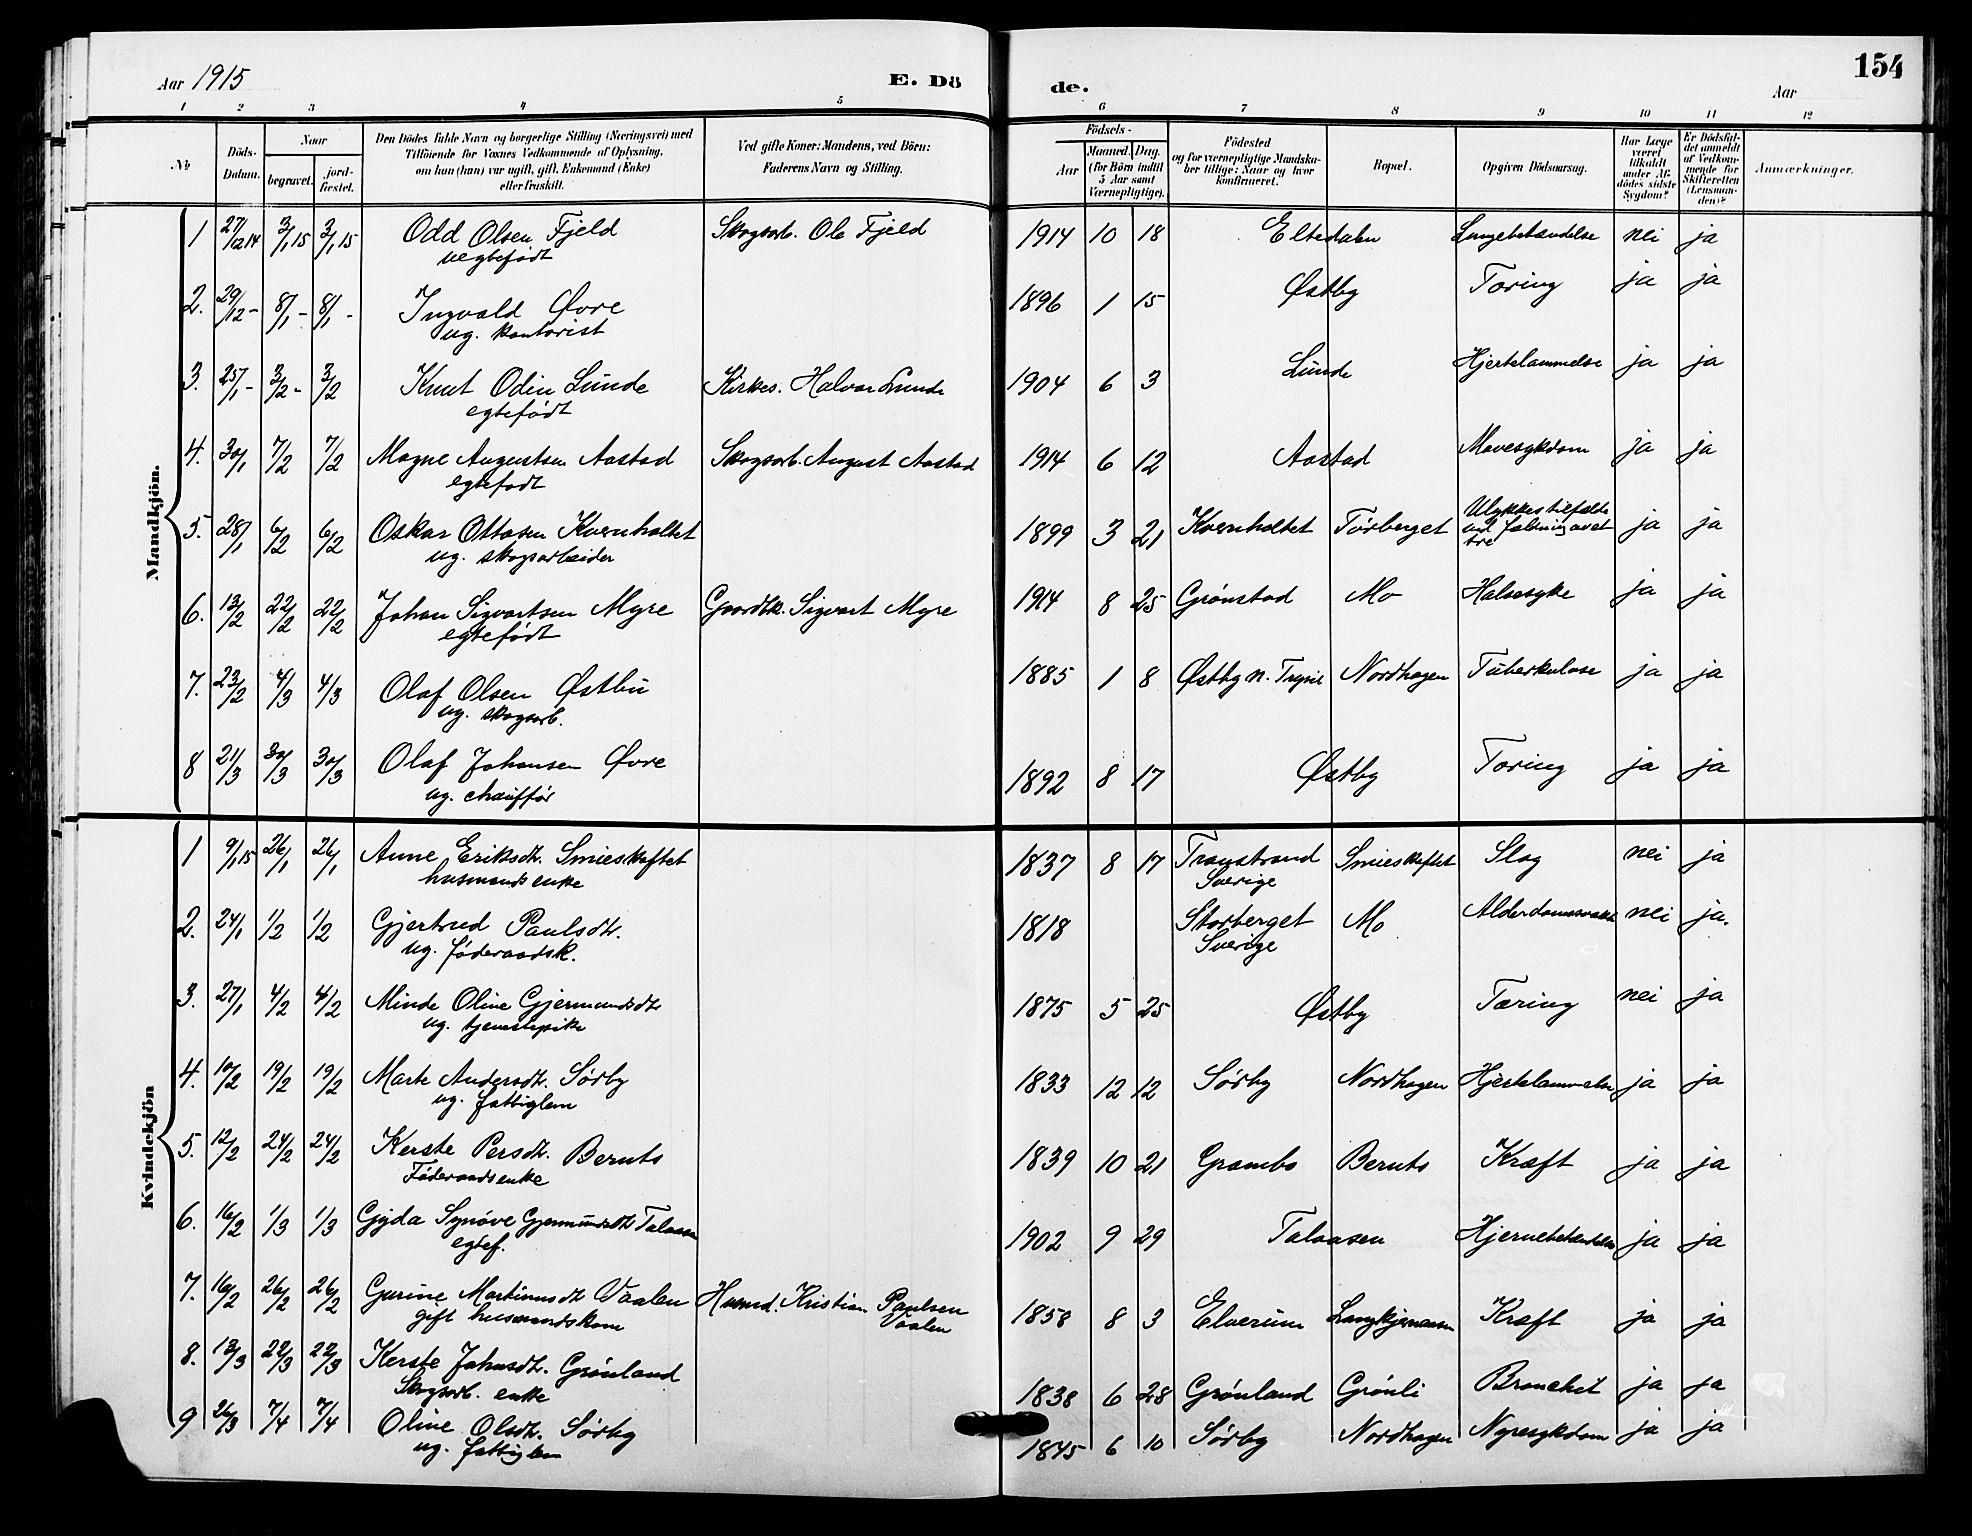 Aar 1915
E. Dö
de.
Aar
154
1 2 3 4 5 6 7 8 9 10 11 12
No
Döds-
Datum.
Naar
begravet.
jord-
fæstet.
Den Dödes fulde Navn og borgerlige Stilling (Næringsvei) med
Tilföiende for Voxnes Vedkommende af Oplysning,
om han (hun) var ugift, gift, Enkemand (Enke)
eller fraskilt.
Ved gifte Koner: Mandens, ved Börn:
Faderens Navn og Stilling.
Födsels-
Aar
Maaned. Dag.
(for Börn indtil
5 Aar samt
Værnepligtige).
Födested
og for værnepligtige Mandska-
ber tillige: Naar og hvor
konfirmeret.
Bopæl.
Opgiven Dödsaarsag.
Har Læge
været
tilkaldt
under Af-
dödes sidste
Sygdom?
Er Dödsfal-
det anmeldt
af Vedkom-
mende for
Skifteretten
(Lensman-
den)?
Anmærkninger.
Mandkjön.
1 27/12 14 3/1 15 3/1 15 Odd Olsen Fjeld Skogsarb. Ole Fjeld 1914 10 18 Eltedalen Lungebetændelse nei ja
uegtefødt
2. 29/12 - 8/1 - 8/1 - Ingvald Øvre 1896 1 15 Østby Tæring ja ja
ug. kontorist
3. 25/1 - 3/2 - 3/2 Knut Odin Lunde Kirkes. Halvor Lunde 1904 6 3 Lunde Hjertelammelse ja ja
egtefødt
4. 30/1 7/2 7/2 Magne Augustsen Aastad Skogsarb. August Aastad 1914 6 12 Aastad Mavesykdom ja ja
egtefødt
5. 28/1 6/2 6/2 Oskar Ottosen Kvernholtet 1899 3 21 Kvernholtet Tørberget Ulykkestilfælde ja ja
ug. skogsarbeider
ved fældning av et
tre
6. 13/2 22/2 22/2 Johan Sigvartsen Myre Gaardbr. Sigvart Myre 1914 8 25 Grønstad Mo Halsesyke ja ja
egtefødt
7. 23/2 4/3 4/3 Olaf Olsen Østbu 1885 1 8 Østby n. Trysil Nordhagen Tuberkulose ja ja
ug. skogsarb.
8 21/3 30/3 30/3 Olaf Johansen Øvre 1892 8 17 Østby Tæring ja ja
ug. chauffør
Kvindekjön
1 9/1 15 26/1 26/1 Anne Eriksdtr. Smieskeftet 1837 8 17 Transtrand Smieskeftet Slag nei ja
husmandsenke Sverige
2. 24/1 1/2 1/2 Gjertrud Paulsdtr. 1818 Storberget Mo Alderdomssvakh nei ja.
ug. føderaadsk. Sverige
3. 27/1 4/2 4/2 Minda Oline Gjermundsdtr 1875 5 25 Østby Tæring nei ja
ug. tjenestepike
4. 10/2 19/2 19/2 Marte Andersdtr. Sørby 1833 12 12 Sørby Nordhagen Hjertelammelse ja ja
ug. fattiglem
5. 12/2 24/2 24/2 Kerste Persdtr. Bernts 1839 10 21 Grambo Bernts Kræft ja ja
Føderaadsenke
6. 16/2 1/3 1/3 Gyda Synøve Gjermundsdtr Talaasen 1902 9 29 Talaasen Hjernebetændelse ja ja
egtef.
7. 16/2 26/2 26/2 Gurine Martinusdtr Vaalen Husmd. Kristian Paulsen 1858 8 3 Elverum Kræft ja ja
gift husmandskone Vaalen
8. 13/3 22/3 22/3 Kerste Johnsdtr. Grønland 1838 6 28 Grønland Grønli Bronchit ja ja
Skogsarb. enke
9 26/3 7/4 7/4 Oline Olsdtr. Sørby 1845 6 10 Sørby Nordhagen Nyresykdom ja ja
ug. fattiglem